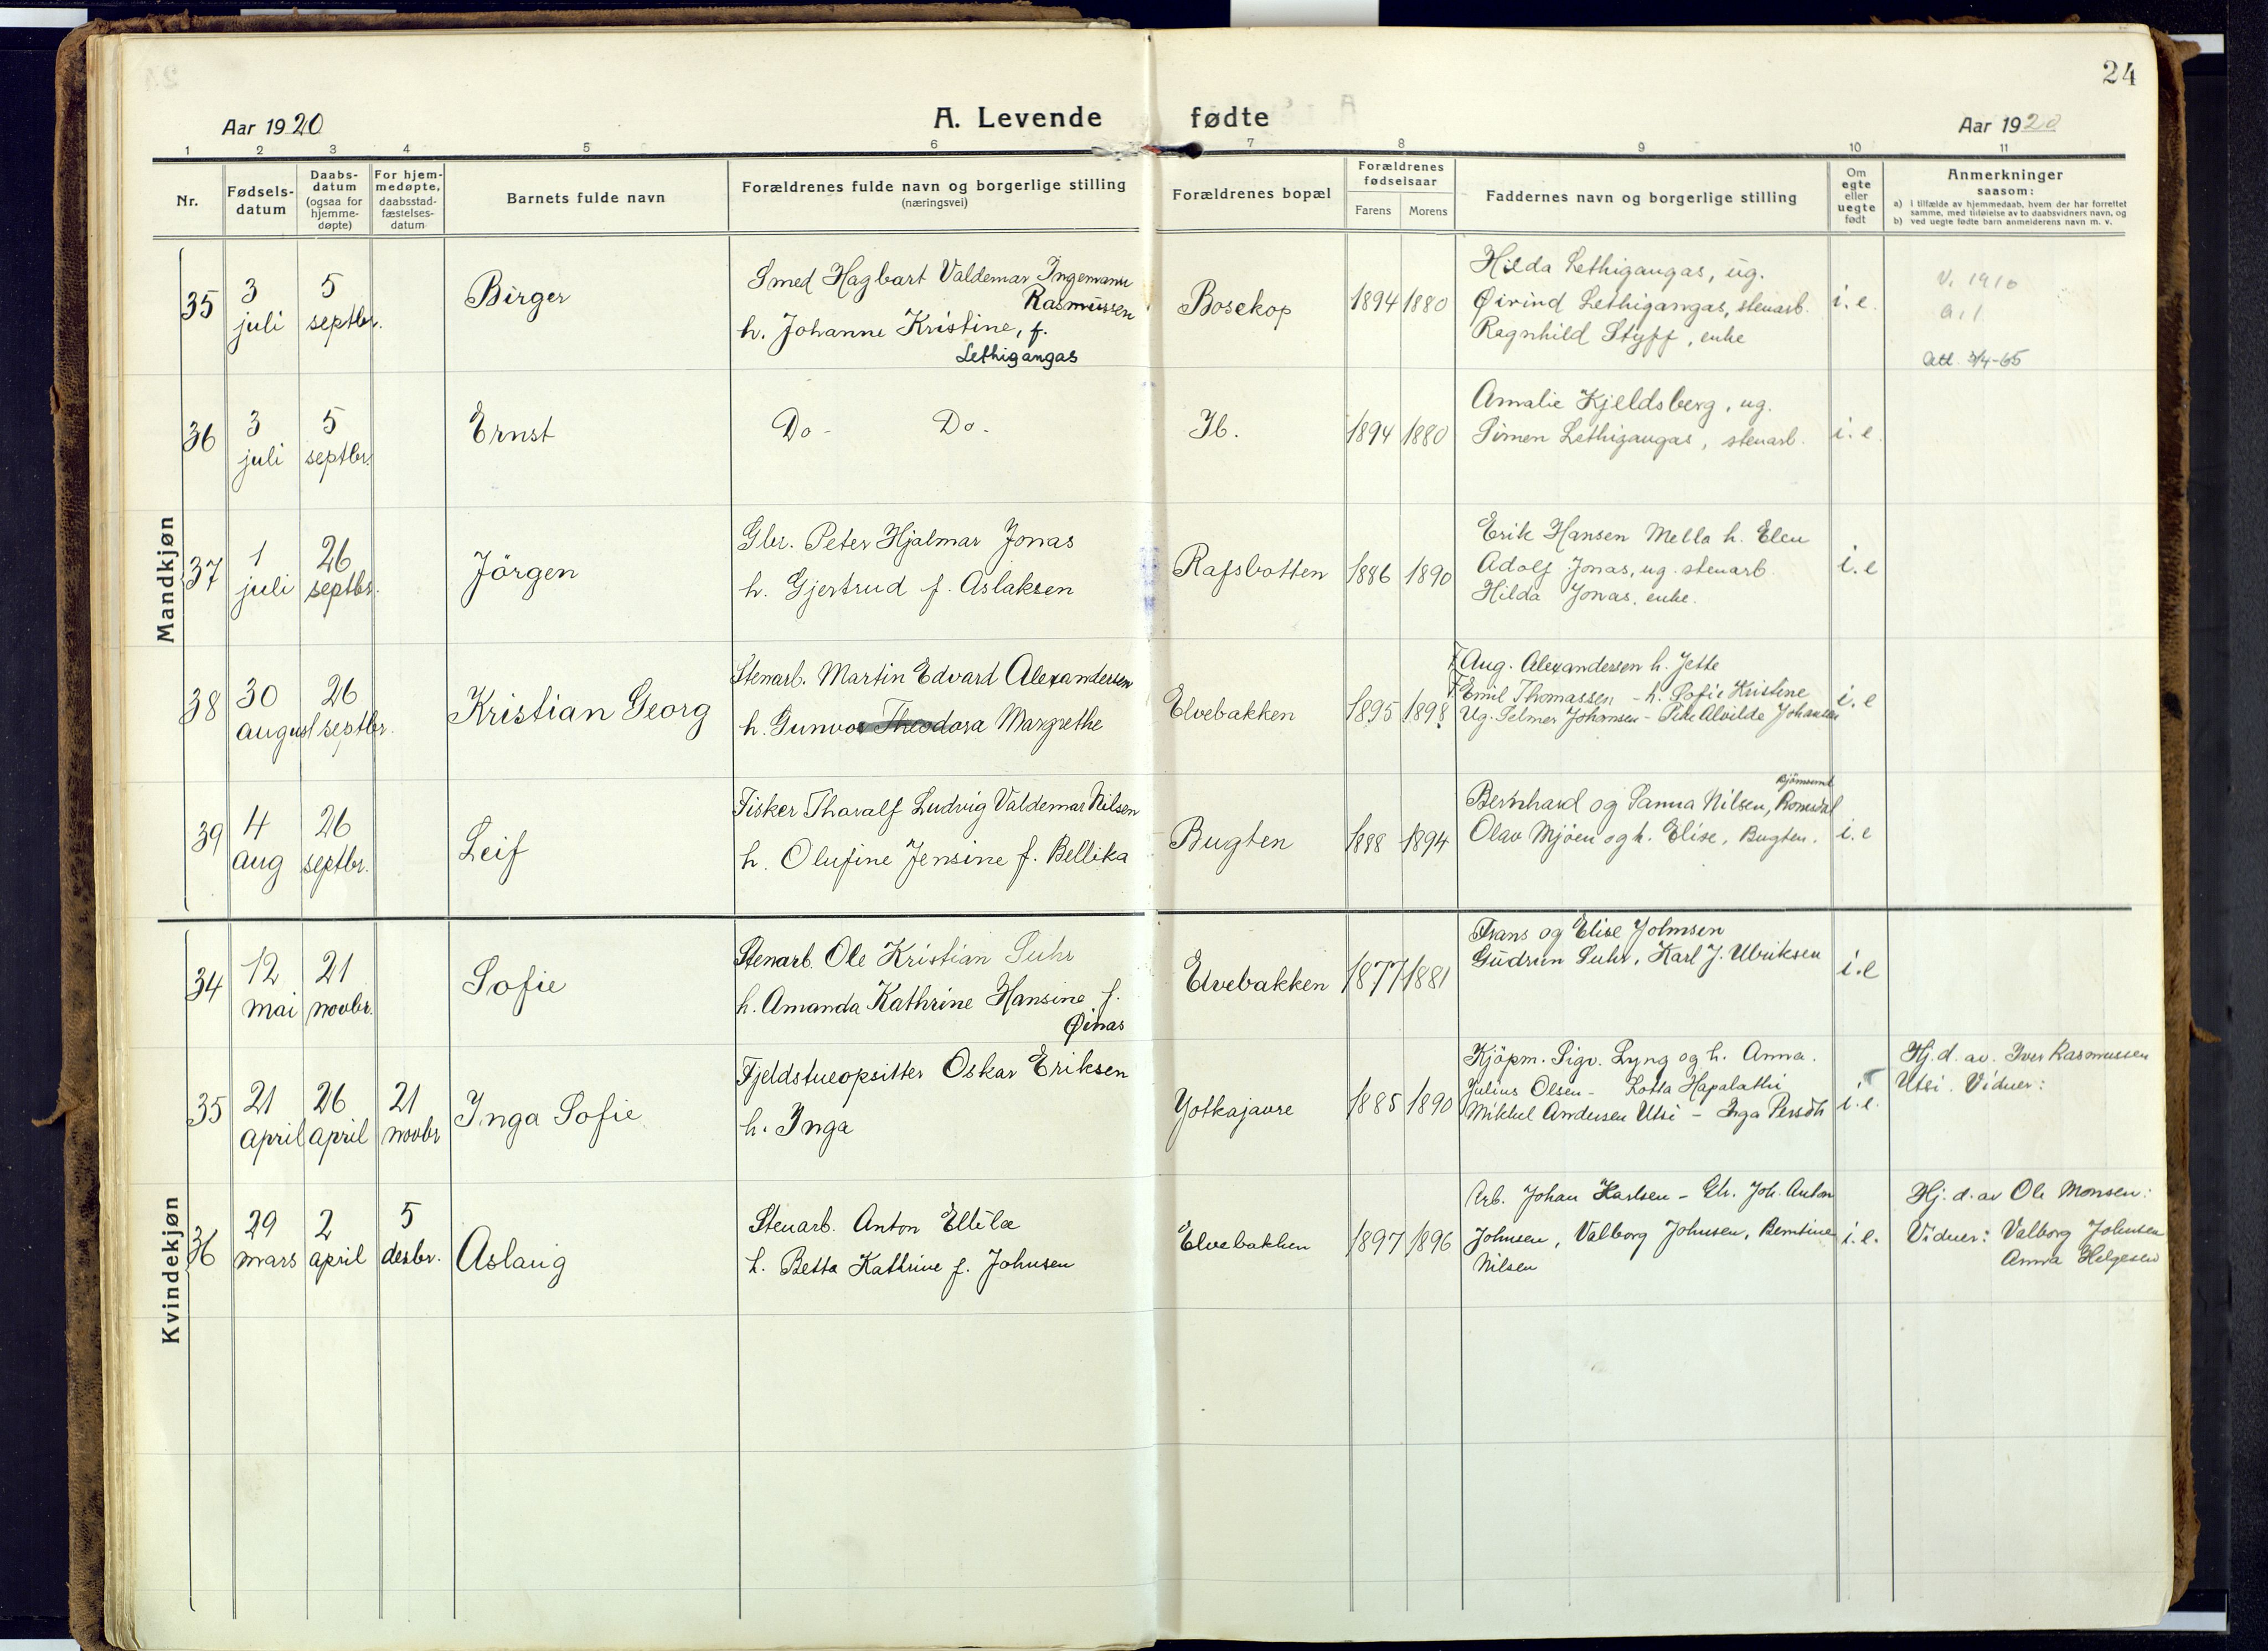 24
Aar 1920
A. Levende fødte
Aar 1920
1 2 3 4 5 6 7 8 9 10 11
Nr.
Fødsels-
datum
Daabs-
datum
(ogsaa for
hjemme-
døpte)
For hjem-
medøpte,
daabsstad-
fæstelses-
datum
Barnets fulde navn
Forældrenes fulde navn og borgerlige stilling
(næringsvei)
Forældrenes bopæl
Forældrenes
fødselsaar
Farens Morens
Faddernes navn og borgerlige stilling
Om
egte
eller
uegte
født
Anmerkninger
saasom:
a) i tilfælde av hjemmedaab, hvem der har forrettet
samme, med tilføielse av to daabsvidners navn, og
b) ved uegte fødte barn anmelderens navn m. v.
Mandkjøn
35
3
juli
5
septbr.
Birger
Smed Hagbart Valdemar Ingemann
Rasmussen
h. Johanne Kristine, f.
Lethigangas
Bosekop
1894 1880
Hilda Lethigangas, ug.
Øivind Lethigangas, stenarb.
Ragnhild Stypf, enke
i. e.
V. 1910
a. l.
Att. 3/4-65
36
3
juli
5
septbr.
Ernst
Do - Do -
Ib.
1894 1880
Amalie Kjeldsberg, ug.
Simen Lethigangas, stenarb.
i. e.
37
1
juli
26
septbr.
Jörgen
Gbr. Peter Hjalmar Jonas
h. Gjertrud f. Aslaksen
Rafsbotten
1886 1890
Erik Hansen Mella h. Elen
Adolf Jonas, ug. stenarb.
Hilda Jonas, enke.
i. e
38
30
august
26
septbr.
Kristian Georg
Stenarb. Martin Edvard Alexandersen
h. Gunvor Theodora Margrethe
Elvebakken
1895 1898
Aug. Alexandersen h. Jette
Emil Thomassen - h. Sofie Kristine
Ug. Selmer Johansen - Pike Alvilde Johansen
i. e
39
4
aug
26
septbr.
Leif
Fisker Tharalf Ludvig Valdemar Nilsen
h. Olufine Jensine f. Bellika
Bugten
1888 1894
Bjömsund
Bernhard og Sanna Nilsen, Romsdal
Olav Mjöen og h. Elise, Bugten.
i. e
Kvindekjøn
34
12
mai
21
novbr.
Sofie
Stenarb. Ole Kristian Suhr
h. Amanda Kathrine Hansine f.
Øinas
Elvebakken
1877 1881
Frans og Elise Johnsen
Gudrun Suhr, Karl J. Ulriksen
i. e
35
21
april
26
april
21
novbr
Inga Sofie
Fjeldstueopsitter Oskar Eriksen
h. Inga
Jotkajavre
1885 1890
Kjöpm. Sigv. Lyng og h. Anna.
Julius Olsen - Lotta Hapalathi
Mikkel Andersen Utsi - Inga Persdt
i. e.
Hj. d. av. Iver Rasmussen
Utsi. Vidner:
36
29
mars
2
april
5
desbr.
Aslaug
Stenarb. Anton Ellilæ
h. Betta Kathrine f. Johnsen
Elvebakken
1897 1896
Arb. Johan Karlsen - Joh. Anton
Johnsen, Valborg Johnsen, Berntine
Nilsen
i. e.
Hj. d. av Ole Monsen:
Vidner: Valborg Johnsen
Anna Helgesen